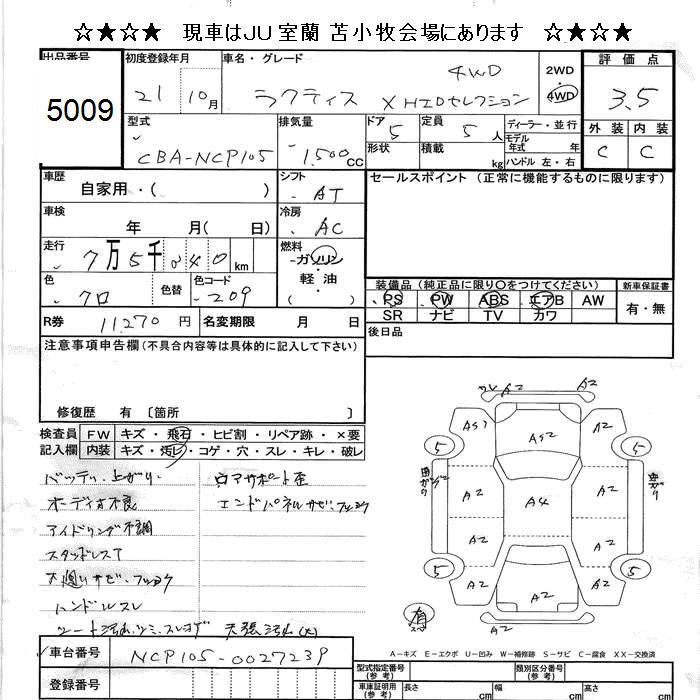 ☆★☆★ 現車はJU室蘭 苫小牧会場にあります ☆★☆★
出品番号 初度登録年月 車名・グレード 評価点
5009 21 10月 ラクティス XHIDセレクション 4WD 2WD 4WD 3.5
型式 排気量 ドア 5 定員 5人 ディーラー・並行 外装 内装
CBA-NCP105 1,500cc 形状 積載 kg モデル年式 年式 ハンドル 左・右 C C
車歴 自家用・( ) シフト AT セールスポイント (正常に機能するものに限ります)
車検 年 月( 日) 冷房 AC
走行 7万5千040km 燃料 ガソリン
軽・油
( )
色 クロ 色替 色コード 209 装備品(純正品に限り○をつけてください) 新車保証書
PS PW ABS エアB AW 有・無
SR ナビ TV カワ
R券 11,270円 名変期限 月 日 後日品
注意事項申告欄(不具合内容等は具体的に記入して下さい)
修復歴 有 〔箇所 〕
検査員 FW キズ・飛石・ヒビ割・リペア跡・×要
記入欄 内装 キズ・汚レ・コゲ・穴・スレ・キレ・破レ
バッテリ上がり
オーディオ不良
アイドリング不調
スタッドレスT
下廻りサビ・フショク
ハンドルスレ
シート汚れ
天張汚れ(大)
コアサポート歪
エンドパネルサビ・フショク
A2 A2
AS1 AS2 A2
5 5
曲がり 曲がり
A2 A4 A2
A2 A2
5 5
A2 A2 A2
有 A2
スペ
A-キズ E-エクボ U-凹み W-補修跡 S-サビ C-腐食 XX-交換済
車台番号 NCP105-0027239
登録番号
型式指定番号(参考) 類別区分番号(参考)
車庫証明用(参考) 長さ cm 幅 cm 高さ cm